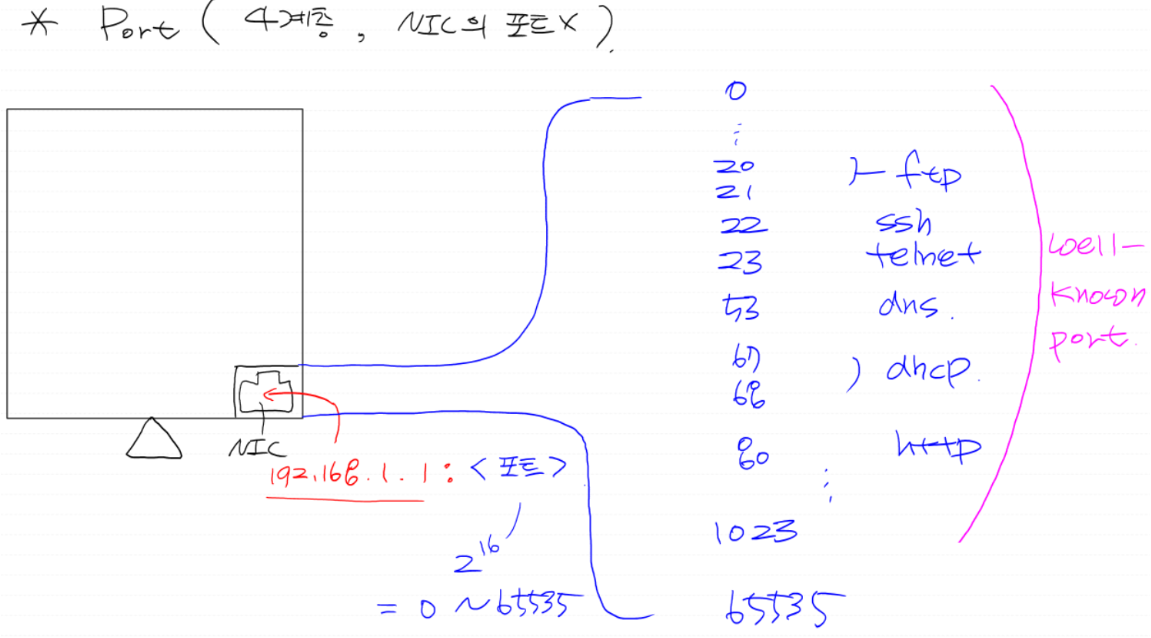 * Port ( 4계층, NIC의 포트X ).
0
⋮
20
21
ftp
22 ssh
23 telnet
53 dns.
67
68
) dhcp.
80 http
⋮
1023
65535
well-
known
port.
NIC
192.168.1.1 : <포트>
2^16
= 0 ~ 65535